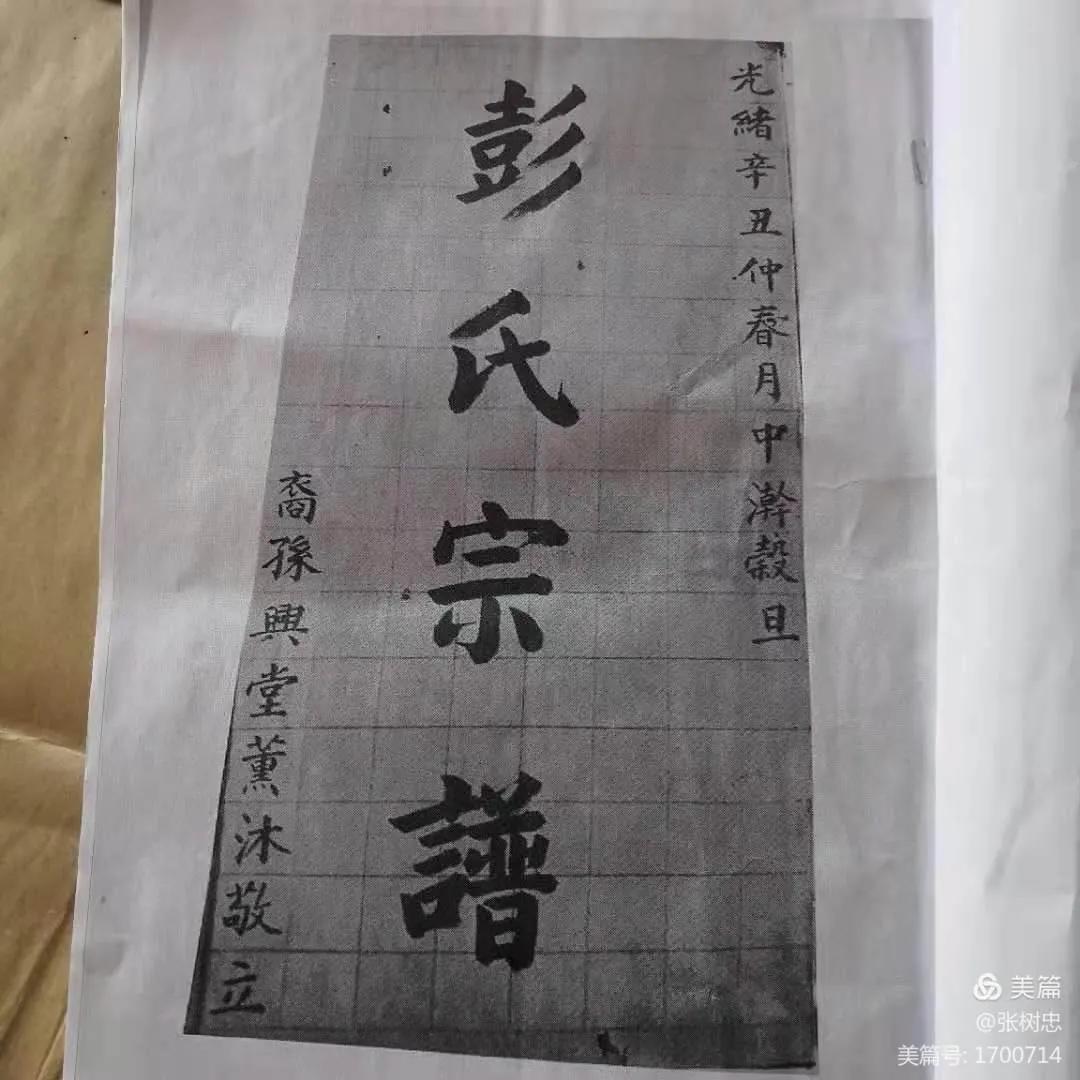 光緒辛丑仲春月中澣穀旦
彭氏宗譜
裔孫興堂薰沐敬立
美篇
@张树忠
美篇号: 1700714